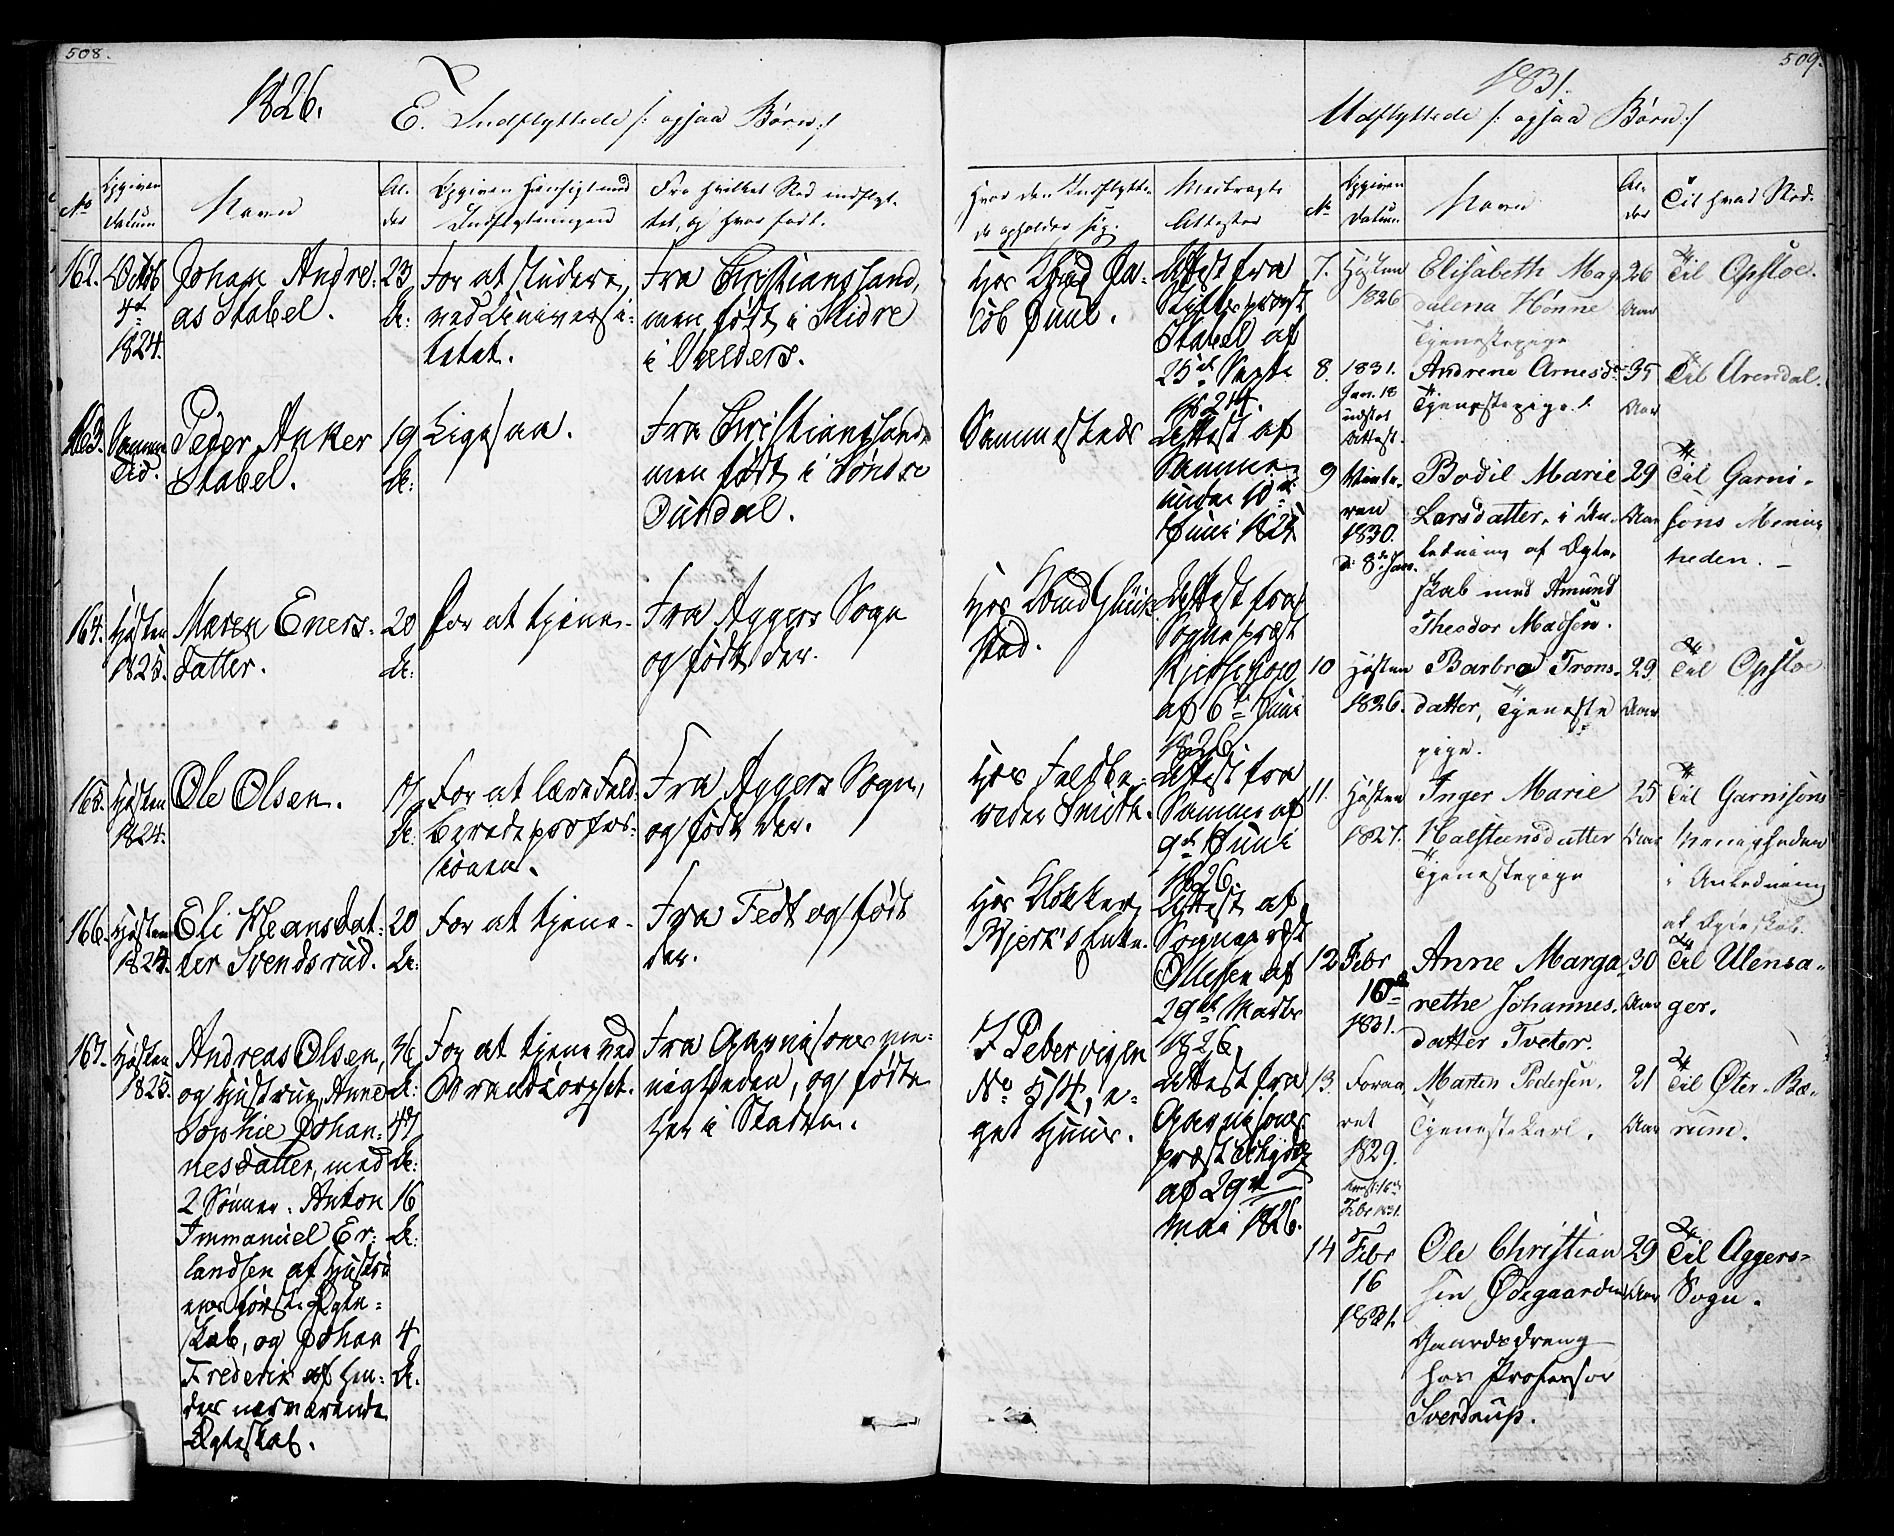 508.
1826.
E. Indflyttede /: ogsaa Børn :/
No
Opgiven Datum
Navn
Al-
der
Opgiven Hensigt med
Indflytningen
Fra hvilket Sted indflyt-
tet, og hvor født.
Hvor den Indflytte-
de opholder sig.
Medbragte
Attester
162.
Octob
4de
1824.
Johan Andre-
as Stabel.
23
A:
For at studere
ved Universi-
tetet.
Fra Christianssand,
men født i Slidre
i Valders.
Hos Ja-
cob Juul.
Attest fra
Stiftsprovst
Stabel af
25de Sept
1824.
163.
Samme
Tid.
Peder Anker
Stabel.
19
A:
Ligesaa.
Fra Christianssand
men født i Søndre
Undal.
Sammesteds
Attest af
Samme
under 10de
Juni 1825
164.
Høsten
1825.
Maren Eners-
datter.
20
A:
For at tjene.
Fra Aggers Sogn
og født der.
Hos
stad.
Attest fra
Sognepræst
af 6te Juni
1826.
165.
Høsten
1824.
Ole Olsen.
17
A:
For at lære Feld-
beredeprofes-
sionen.
Fra Aggers Sogn,
og født der.
Hos Feldbe-
reder Smith.
Attest fra
Samme af
9de Juni
1826.
166.
Høsten
1824.
Eli Meansdat-
ter Svendsrud.
20
A:
For at tjene.
Fra Fedt og født
der.
Hos Klokker
Bjerk's Enke.
Attest af
Sognepræst
Ottesen af
29de Marts
1826.
167.
Høsten
1825.
Andreas Olsen,
og Hustrue, Anne
Sophie Johan-
nesdatter, med
2 Sønner. Anton
Immanuel Er-
landsen af Hustru
ens første Ægte-
skab, og Johan
Frederik af hen-
des nærværende
Ægteskab.
36
A:
47
A:
16
A:
4
A.
For at tjene ved
Brandcorpset.
Fra Garnisonsme-
nigheden, og fødte
her i Staden.
I Pebervigen
No 514, e-
get Huus.
Attest fra
Garnisons
præst
af 29de
Mai 1826.
509.
1831.
Udflyttede /: ogsaa Børn :/
No
Opgiven
Datum
Navn
Al-
der
Til hvad Sted.
7.
Høsten
1826
Elisabeth Mag
dalena Hønne
Tjenestepige
26
Aar
Til Opsloe.
8.
1831.
Jan. 18
udstet
Attest.
Andrene Arnesdr
Tjenestepige.
35
Aar
Til Arendal.
9
Vinte-
ren
1830.
d. 8de Jan.
Bodil Marie
Larsdatter, i An-
ledning af Ægte-
skab med Amund
Theodor Madsen.
29
Aar
Til Garni-
sons Menig
heden. —
10
Høsten
1826.
Barbra Trons-
datter, Tjeneste
pige.
29
Aar
Til Opsloe
11.
Høsten
1827.
Inger Marie
Halsteensdatter
Tjenestepige
25
Aar
Til Garnisons
Menigheden
i Anledning
af Ægteskab.
12
Febr
16de
1831.
Anne Marga
rethe Johannes-
datter Tveter.
30
Aar
Til Ulensa-
ger.
13.
Foraa
ret
1829.
Febr 1831.
Marten Pedersen.
Tjenestekarl.
21
Aar
Til Øster-Bæ-
rum.
14
Febr
16
1831.
Ole Christian
sen Ødegaarden
Gaardsdreng
hos Professor
Sverdrup.
29
Aar
Til Aggers-
Sogn.